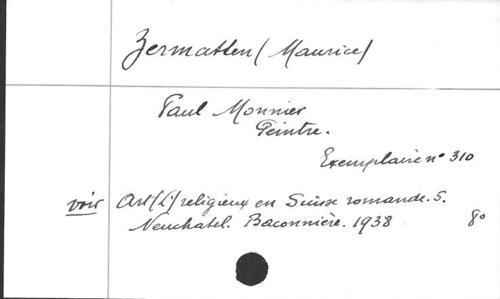 Zermatten (Maurice)
Paul Monnier
Peintre.
Exemplaire n° 310
voir Art (L') religieux en Suisse romande. 5.
Neuchatel. Baconnière. 1938 8°